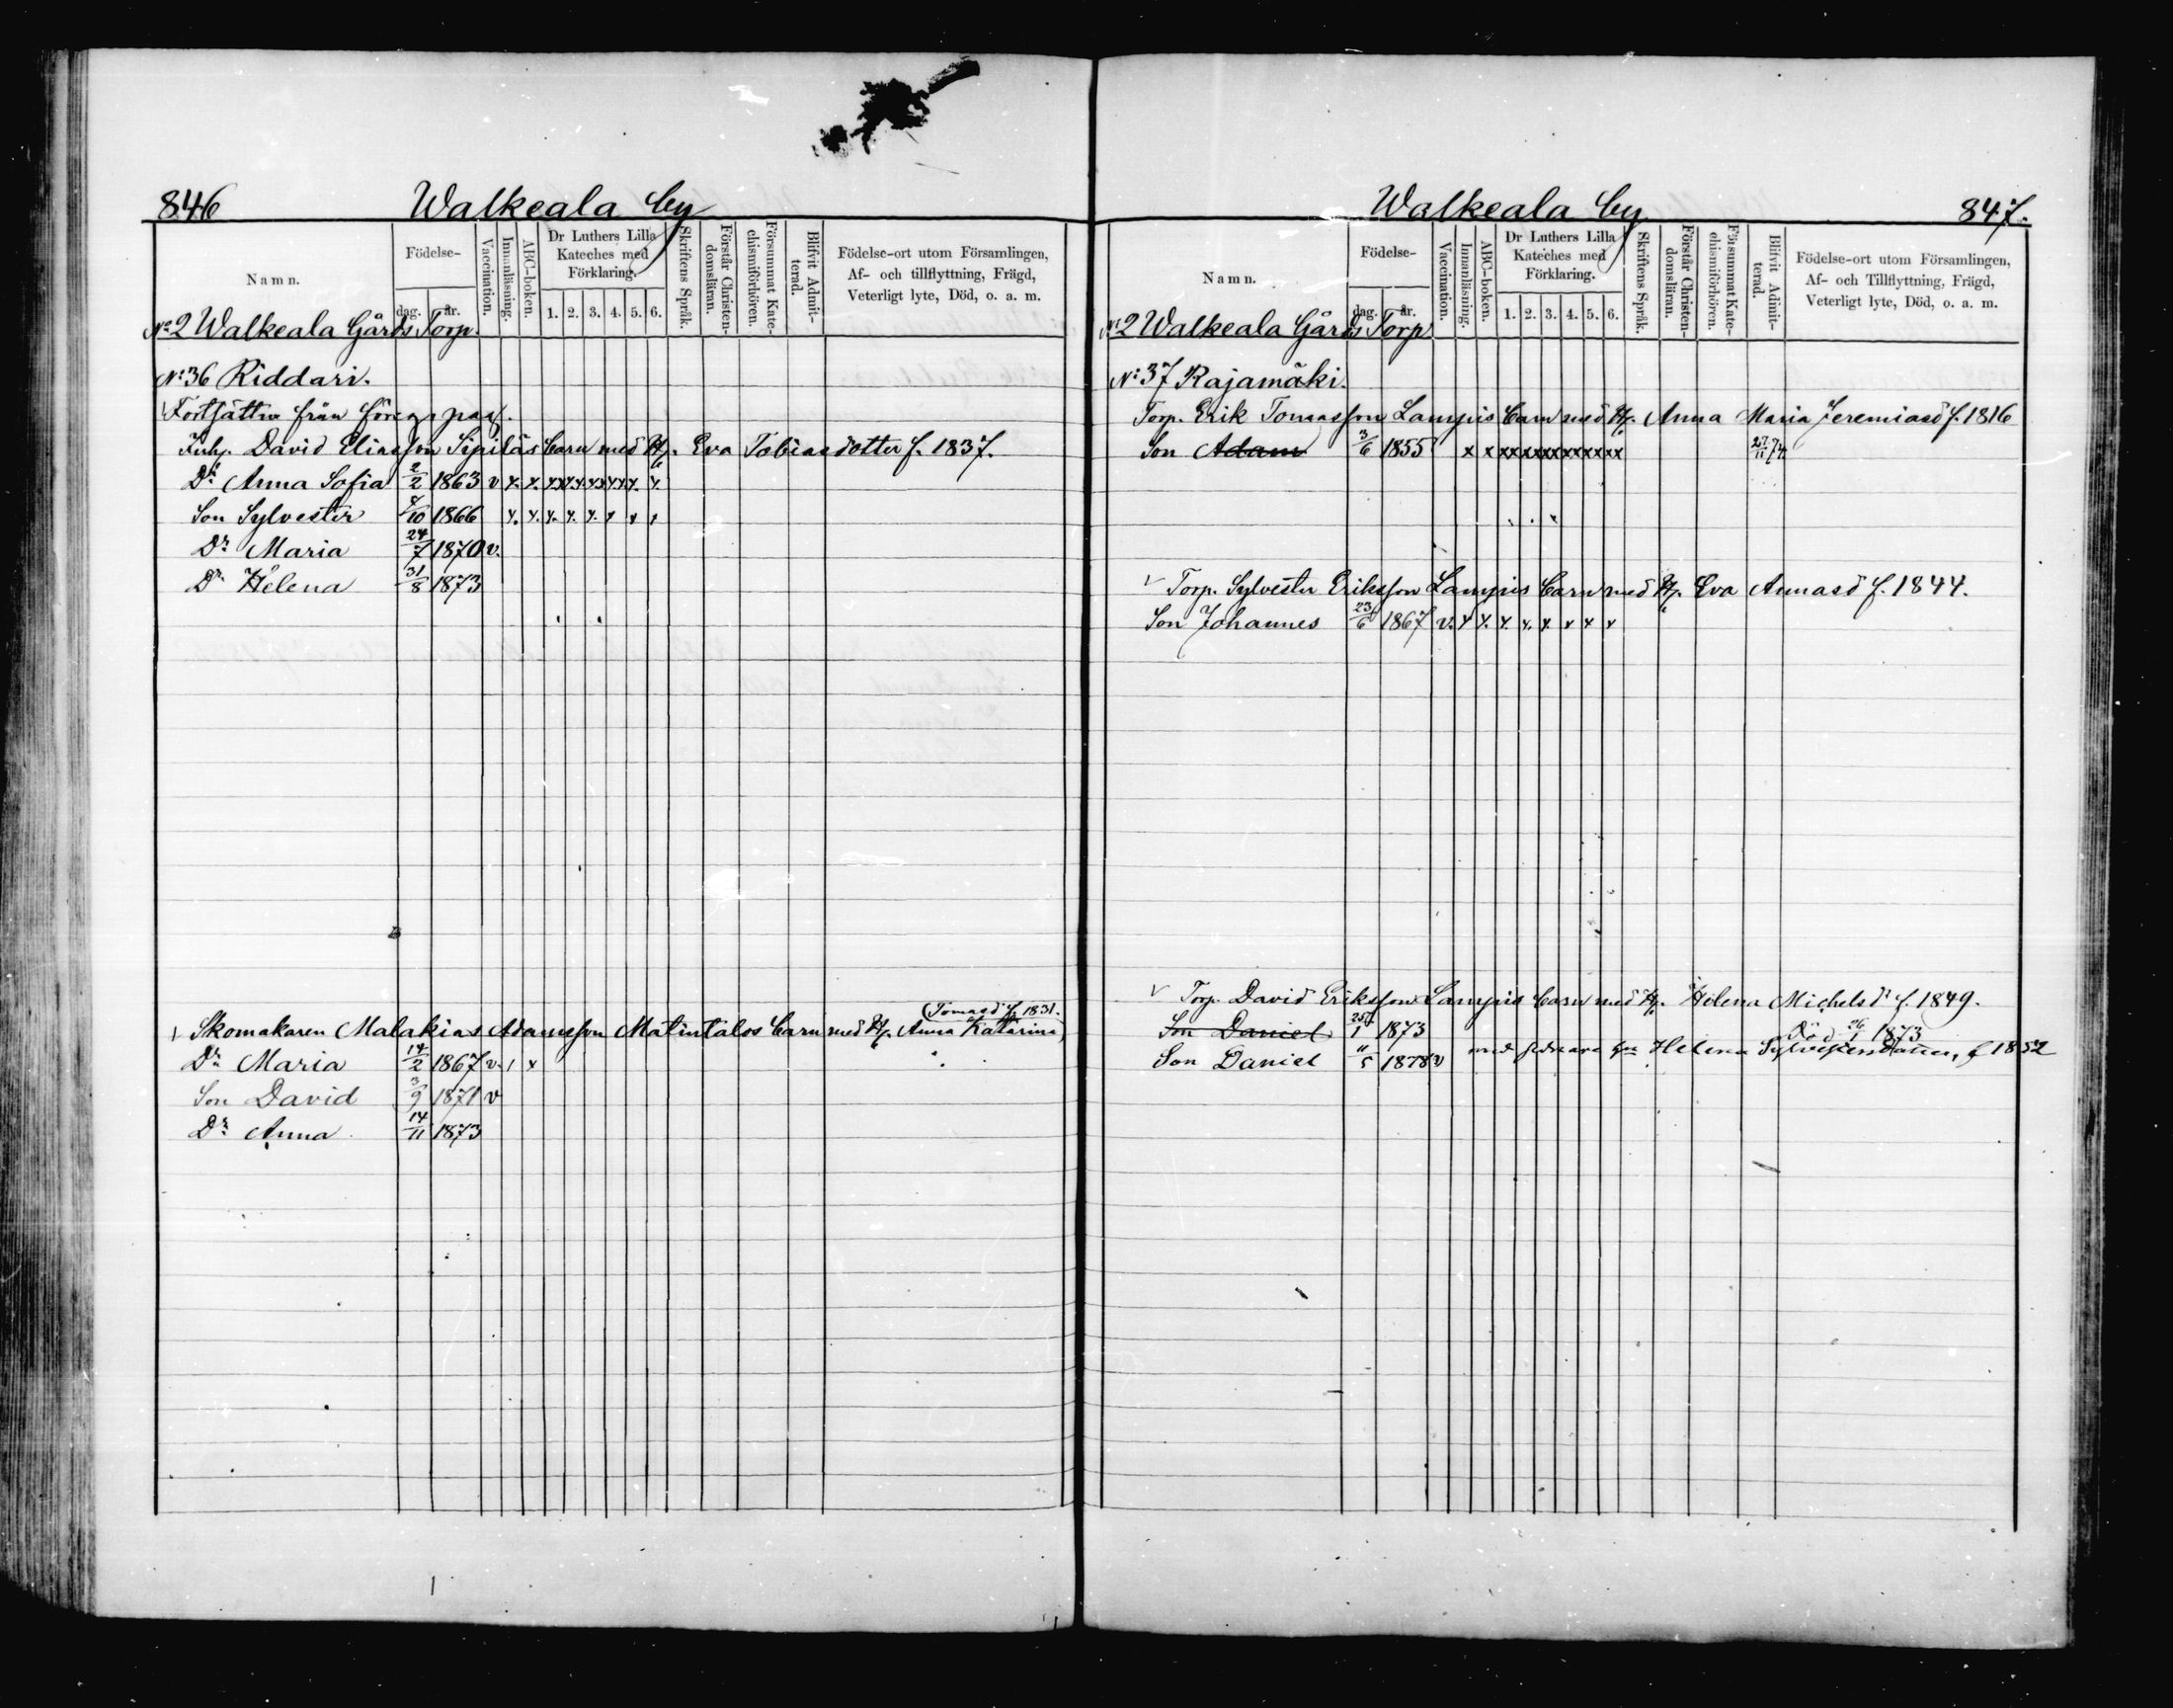 846 Walkeala by
Namn. Födelse- dag. år. Vaccination. Innanläsning. ABC-boken. Dr Luthers Lilla Kateches med Förklaring. 1. 2. 3. 4. 5. 6. Skriftens Språk. Förstår Christendomsläran. Försummat Katechismiförhören. Blifvit Admitterad. Födelse-ort utom Församlingen, Af- och tillflyttning, Frägd, Veterligt lyte, Död, o. a. m.
No 2 Walkeala Gårds Torp.
No 36 Riddari.
Fortsättn från föreg. pag.
Inh. David Eliasson Sipiläs barn med H. Eva Tobiasdotter f. 1837.
Dr Anna Sofia 2/2 1863 v x. x. xx xx xx xx x. x.
Son Sylvester /10 1866 x. x. x. x. x. x x x
Dr Maria 24/7 1870 v.
Dr Helena 31/8 1873
Skomakaren Malakias Adamsson Matintalos barn med H. Anna Katarina (Tomasd f. 1831.)
Dr Maria 14/2 1867 v. / x
Son David 3/9 1871 v
Dr Anna 14/11 1873
Walkeala by 847.
Namn. Födelse- dag. år. Vaccination. Innanläsning. ABC-boken. Dr Luthers Lilla Kateches med Förklaring. 1. 2. 3. 4. 5. 6. Skriftens Språk. Förstår Christendomsläran. Försummat Katechismiförhören. Blifvit Admitterad. Födelse-ort utom Församlingen, Af- och Tillflyttning, Frägd, Veterligt lyte, Död, o. a. m.
No 2 Walkeala Gårds Torp
No 37 Rajamäki.
Torp. Erik Tomasson Lampis barn med H. Anna Maria Jeremiasd f. 1816
Son Adam 3/6 1855 x x xx xx xx xx xx xx 27/11 74
Torp. Sylvester Eriksson Lampis barn med H. Eva Annasd f. 1844.
Son Johannes 23/6 1867 v. x x. x. x. x. x x x
Torp. David Eriksson Lampis barn med H. Helena Michelsd f. 1849.
Son Daniel 25/1 1873 Död 26/1 1873
Son Daniel 11/5 1878 v med sednare Helena Sylvestersdotter, f 1852